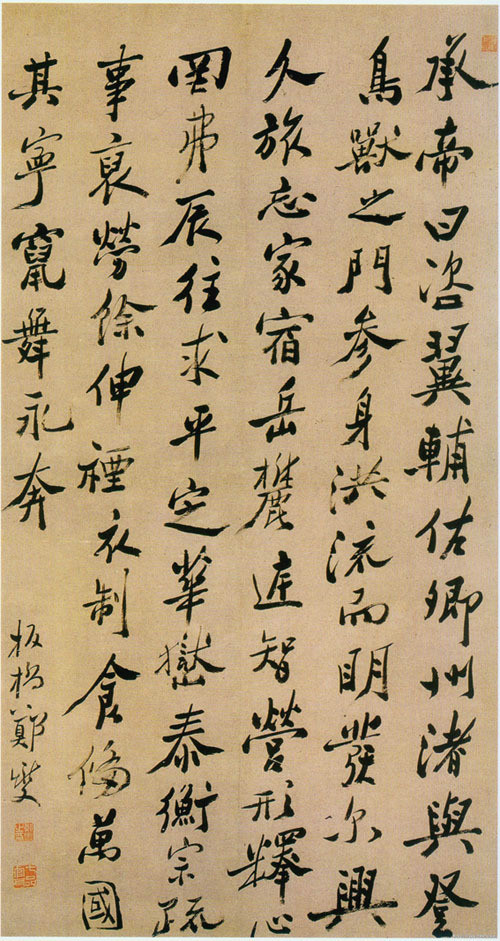 承帝曰咨翼輔佑卿州渚與登
鳥獸之門參身洪流而明發尔興
久旅忘家宿岳麓庭智營形釋心
罔弗辰往求平定華嶽泰衡宗疏
事裒勞餘伸禋衣制食備萬國
其寧竄舞永奔
板橋鄭燮